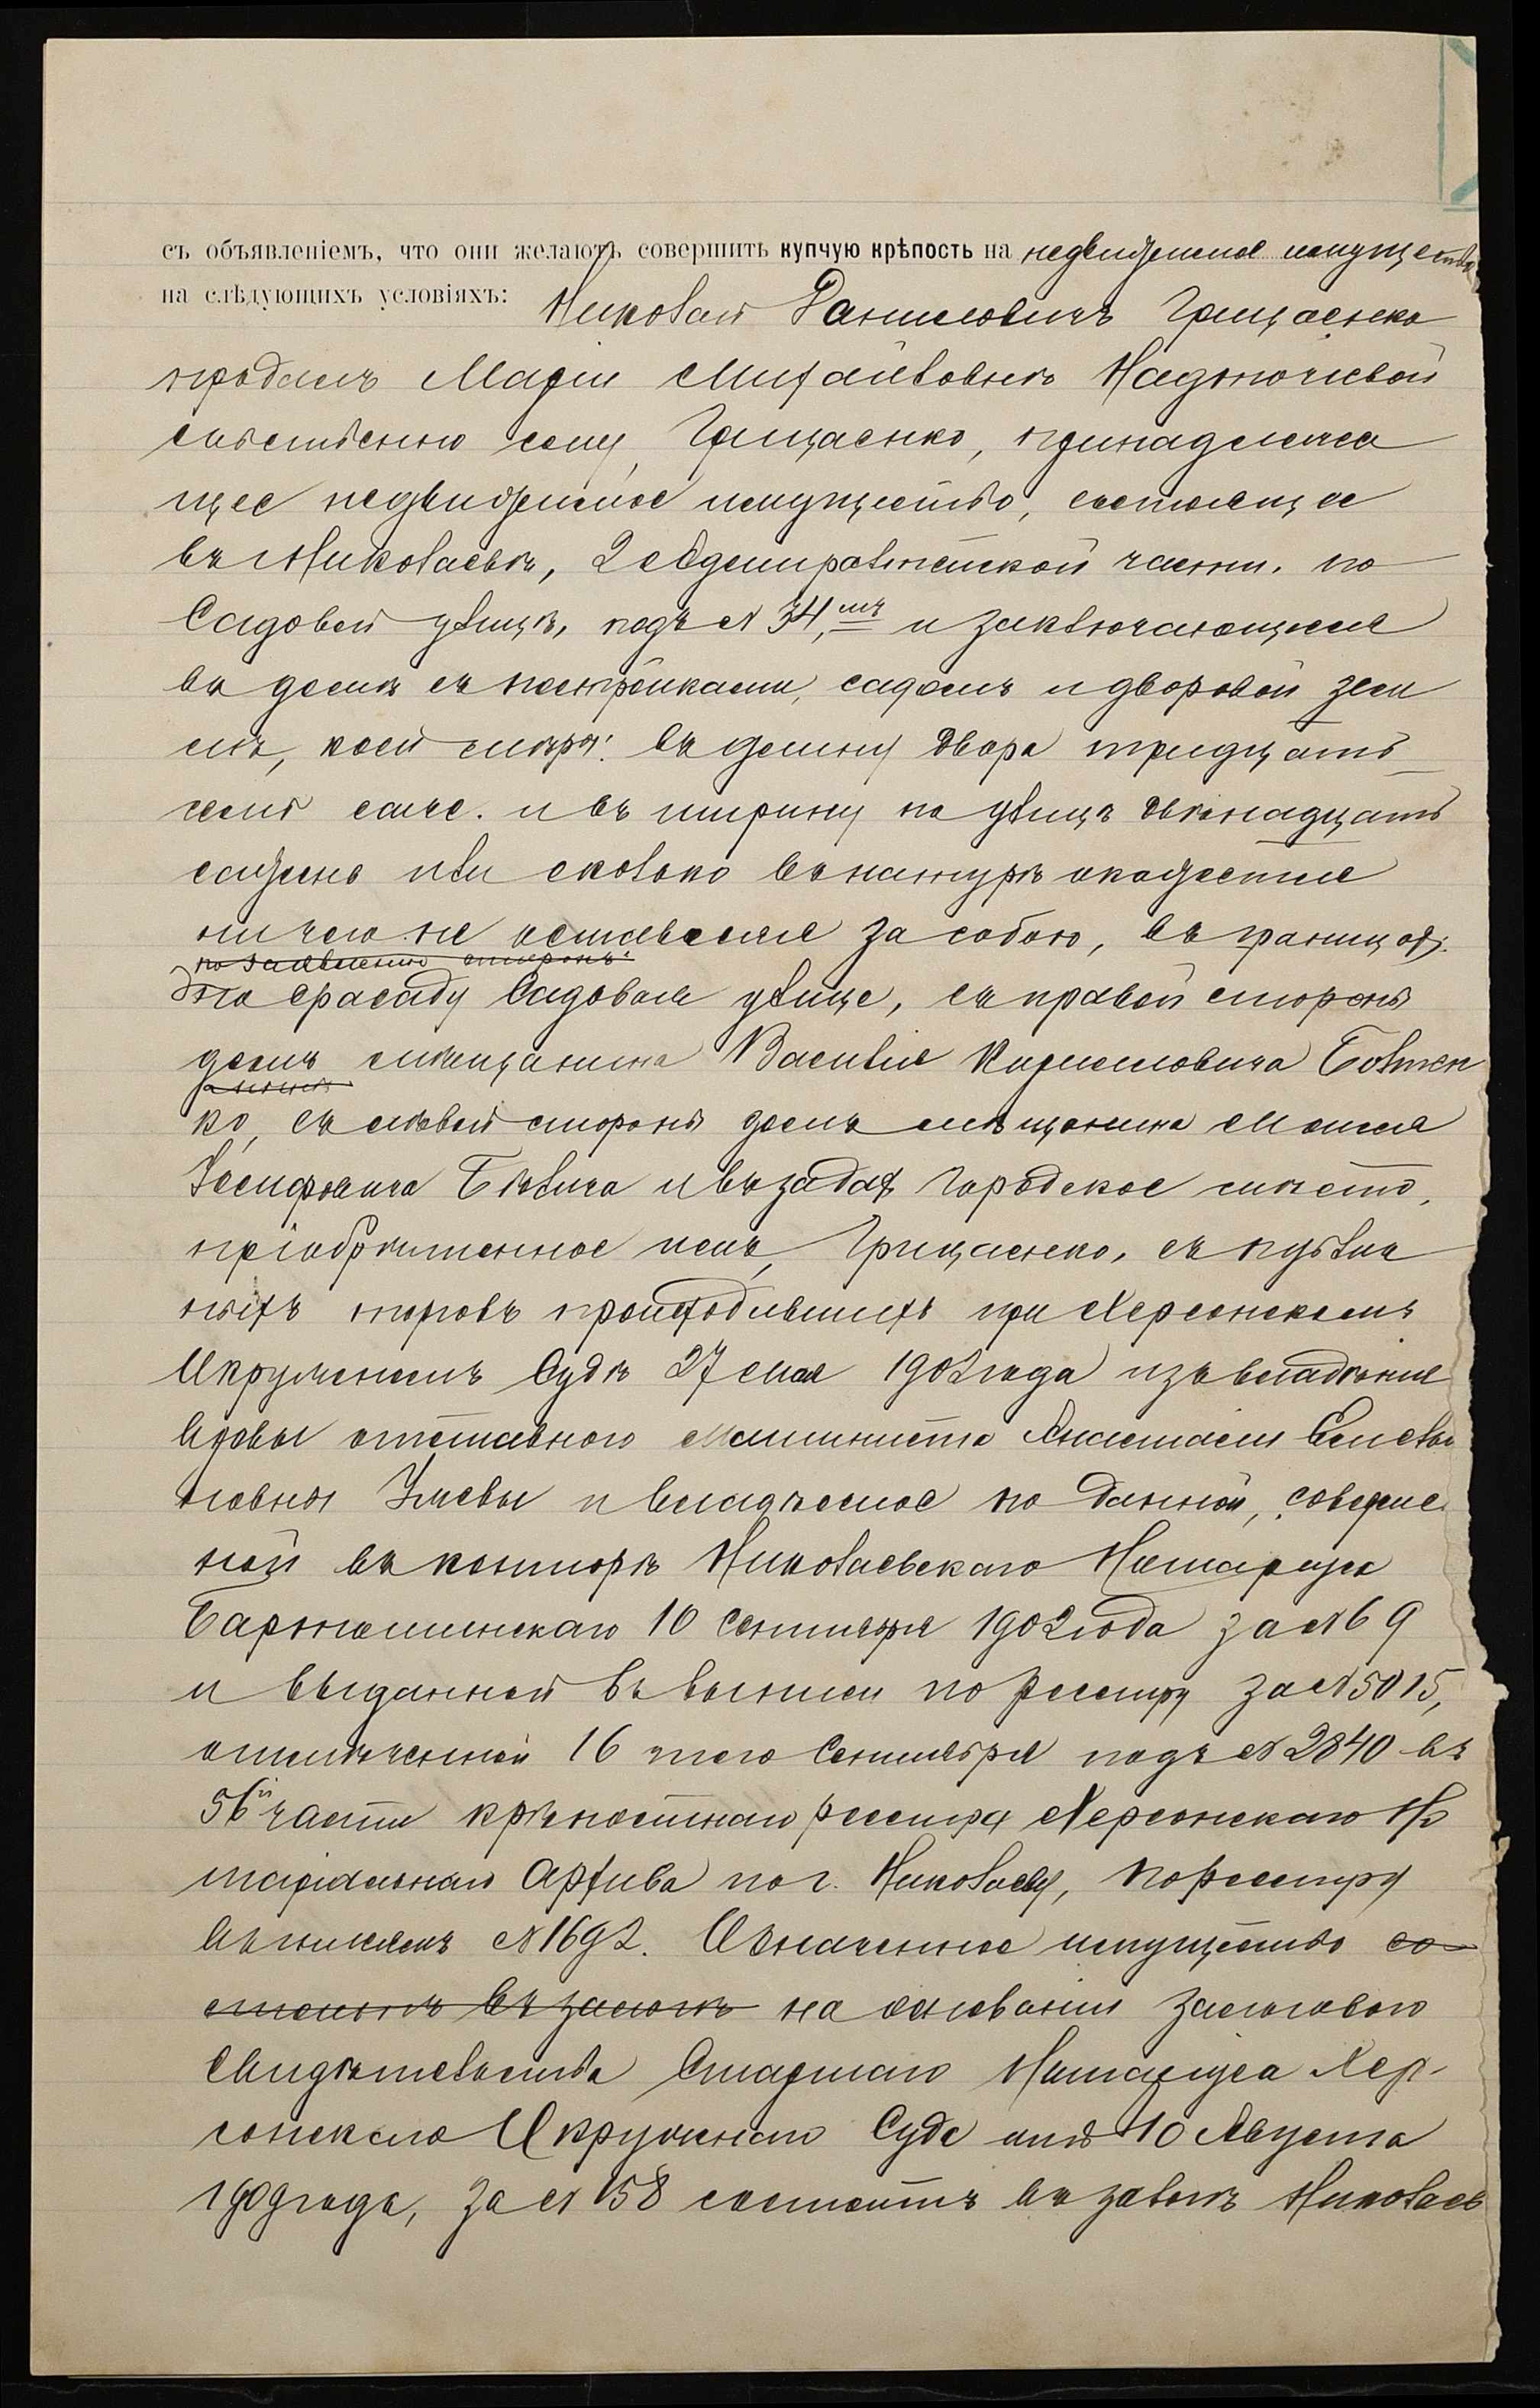 съ объявленіемъ, что они желаютъ совершить купчую крѣпость на недвижимое имущество
на слѣдующихъ условіяхъ: Николай Даниловичъ Грищаенко
продалъ Маріи Михайловнѣ
собственно ему, Грищаенко, принадлежа
щее недвижимое имущество, состоящее
въ Николаевѣ, 2 Адмиралтейской части, по
Садовой улицѣ, подъ № 34,мъ и заключающееся
въ домѣ съ постройками, садомъ и дворовой зем
лѣ, коей мѣры: въ длину двора тридцать
семь саж. и въ ширину по улицѣ двѣнадцать
сажень или сколько въ натурѣ окажется
ничего не оставляя за собою, въ границахъ:
по заявленію сторонъ:
по фасаду Садовая улица, съ правой стороны
домъ мѣщанина Василія Кирилловича Болтен
ко, съ лѣвой стороны домъ мѣщанина
Іосифовича и въ задахъ городское мѣсто,
пріобрѣтенное имъ, Грищаенко, съ публич
ныхъ торговъ происходившихъ при Херсонскомъ
Окружномъ Судѣ 27 мая 1902 года изъ владѣнія
вдовы отставного машиниста Анастасіи Емелья
новны и владѣемое по данной, совершен
ной въ конторѣ Николаевскаго Нотаріуса
10 Сентября 1902 года за № 69
и выданной въ выписи по реестру за № 5015,
отмѣченной 16 того Сентября подъ № 2840 въ
56й части крѣпостнаго реестра Херсонскаго Но
таріальнаго Архива по г. Николаеву, по реестру
въ немъ № 1692. Означенное имущество со
стоитъ въ залогѣ на основаніи залогового
свидѣтельства Старшаго Нотаріуса Хер-
сонскаго Окружнаго Суда отъ 10 Августа
1909 года, за № 158 состоитъ въ залогѣ Николаев